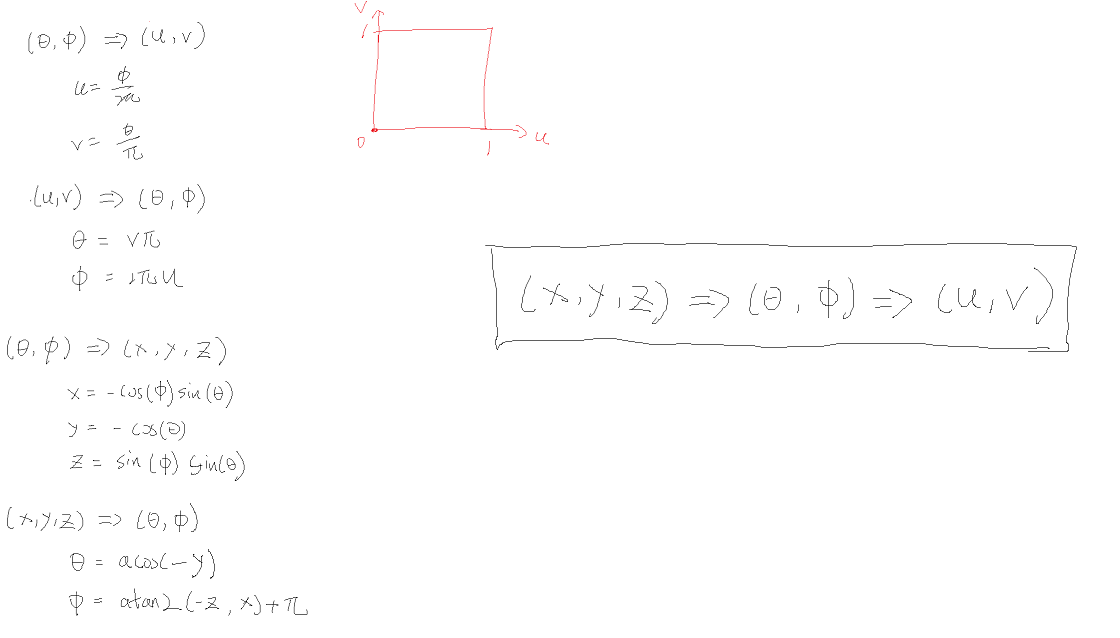 (θ, φ) ⇒ (u, v)
u = φ/2π
v = θ/π
(u,v) ⇒ (θ, φ)
θ = vπ
φ = 2πu
(θ, φ) ⇒ (x, y, z)
x = -cos(φ)sin(θ)
y = -cos(θ)
z = sin(φ) sin(θ)
(x,y,z) ⇒ (θ, φ)
θ = acos(-y)
φ = atan2(-z, x)+π
v
1
0
1
u
(x, y, z) ⇒ (θ, φ) ⇒ (u, v)